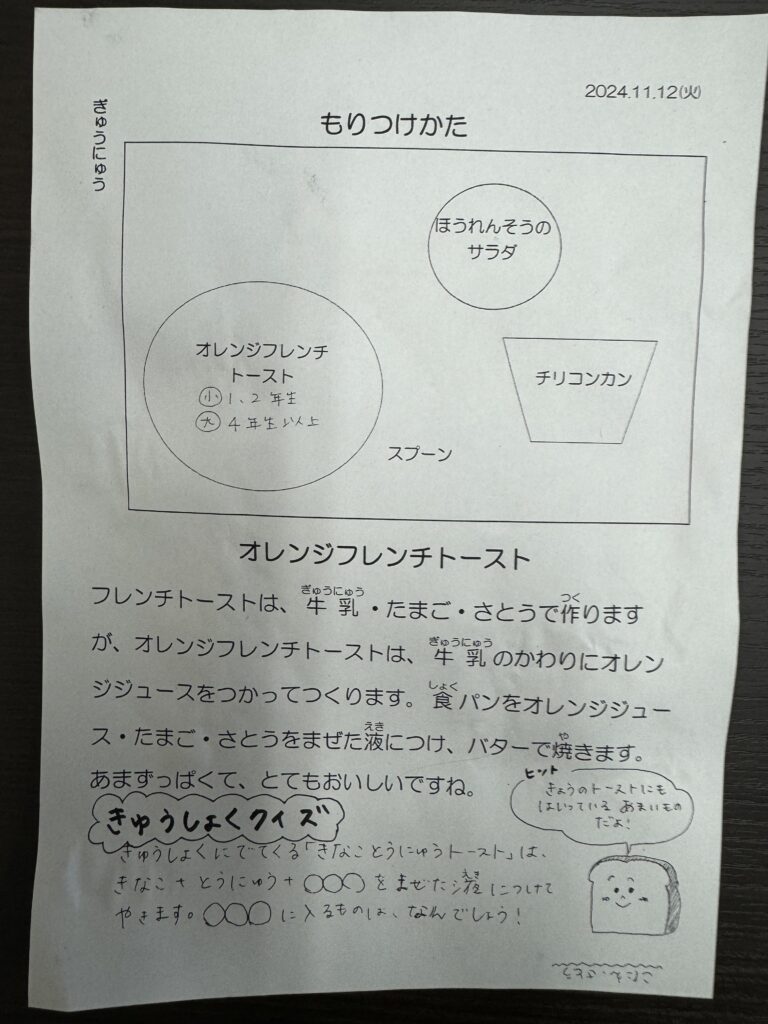 2024.11.12(火)
ぎゅうにゅう
もりつけかた
ほうれんそうの
サラダ
オレンジフレンチ
トースト
小 1、2年生
大 4年生以上
チリコンカン
スプーン
オレンジフレンチトースト
フレンチトーストは、牛乳・たまご・さとうで作ります
ぎゅうにゅう つく
が、オレンジフレンチトーストは、牛乳のかわりにオレン
ぎゅうにゅう
ジジュースをつかってつくります。食パンをオレンジジュー
しょく
ス・たまご・さとうをまぜた液につけ、バターで焼きます。
えき や
あまずっぱくて、とてもおいしいですね。
ヒント
きょうのトーストにも
はいっている あまいもの
だよ!
きゅうしょくクイズ
きゅうしょくにでてくる「きなことうにゅうトースト」は、
きなこ+とうにゅう+〇〇〇をまぜた液につけて
えき
やきます。〇〇〇に入るものは、なんでしょう!
こたえ・さとう